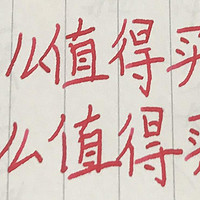 么值得买
么值得买